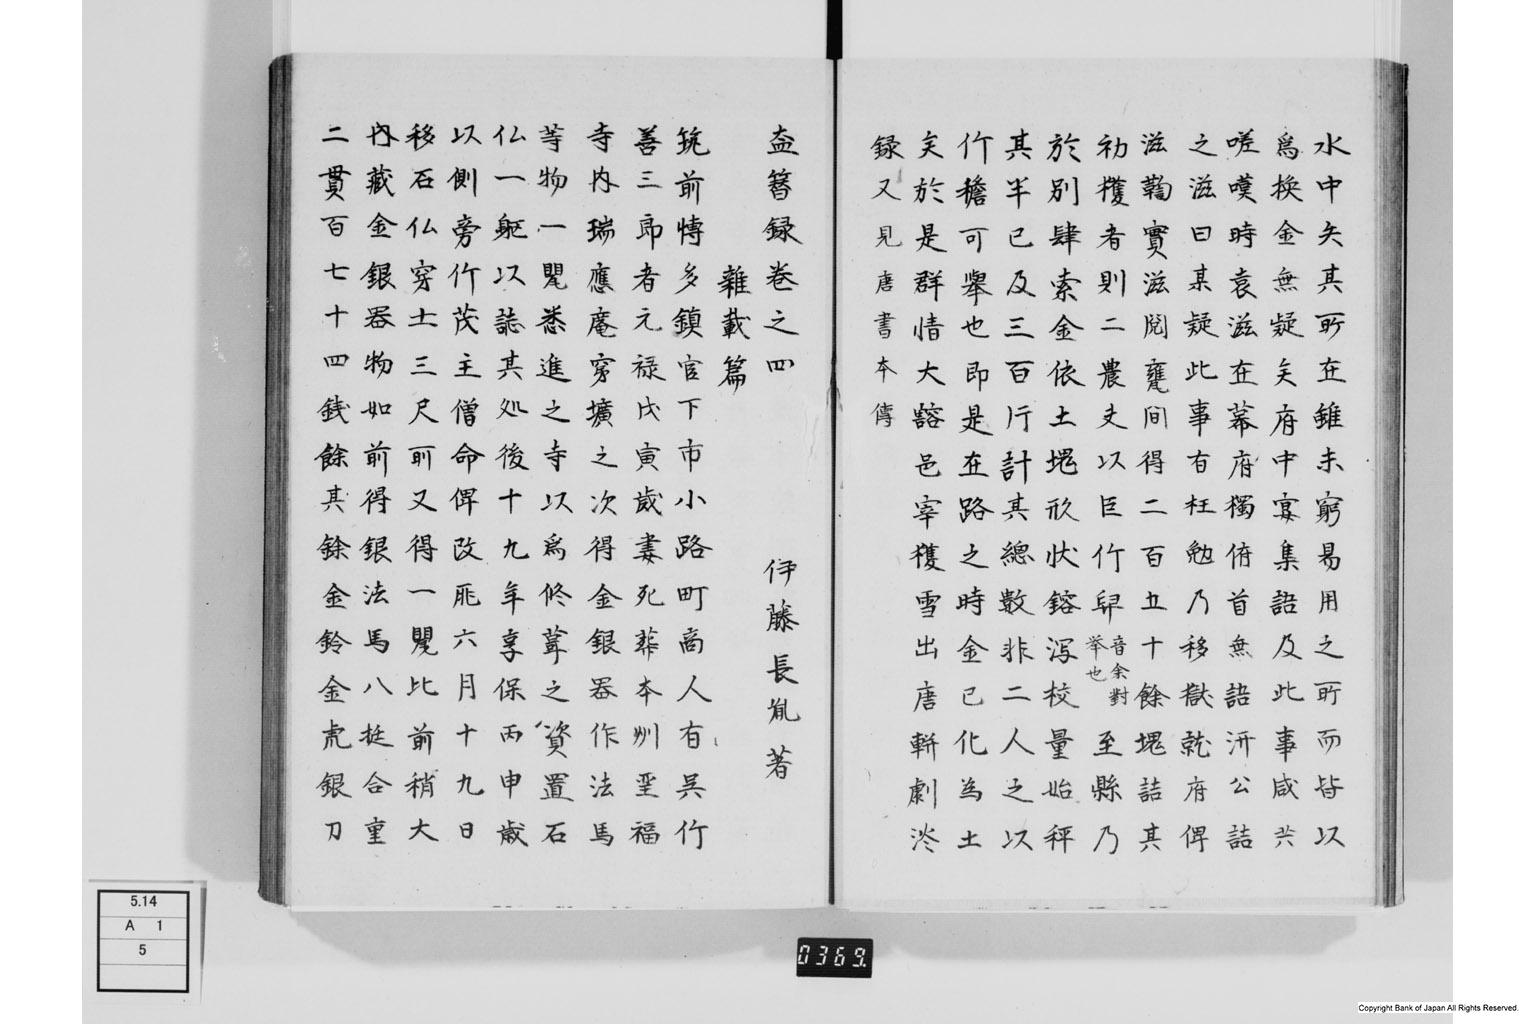 水中矣其所在錐未窮易用之所而皆以
為換金無疑矣府中宴集語及此事咸共
嗟嘆時袁滋在幕府獨俯首無語汧公詰
之滋曰某疑此事有枉勉乃移獄就府俾
滋鞫實滋閲甕間得二百五十餘塊詰其
初穫者則二農夫以巨竹舁音余對挙也至縣乃
於別肆索金依土塊欣状鎔瀉校量始秤
其半已及三百行計其總数非二人之以
竹檐可舉也即是在路之時金已化為土
矣於是群情大豁邑宰穫雪出唐軿劇淡
録又見唐書本傳
盍簪録巻之四
伊藤長胤著
雜載篇
筑前愽多鎮官下市小路町商人有呉竹
善三郎者元禄戊寅歳妻死葬本州聖福
寺内瑞應庵穿壙之次得金銀器作法馬
等物一甖悉進之寺以為修葺之資置石
仏一躯以誌其処後十九年享保丙申歳
以側旁竹茂主僧命俾改厝六月十九日
移石仏穿土三尺所又得一甖比前稍大
内蔵金銀器物如前得銀法馬八挺合重
二貫百七十四銭餘其餘金鈴金虎銀刀
5.14
A 1
5
0369
Copyright Bank of Japan All Rights Reserved.